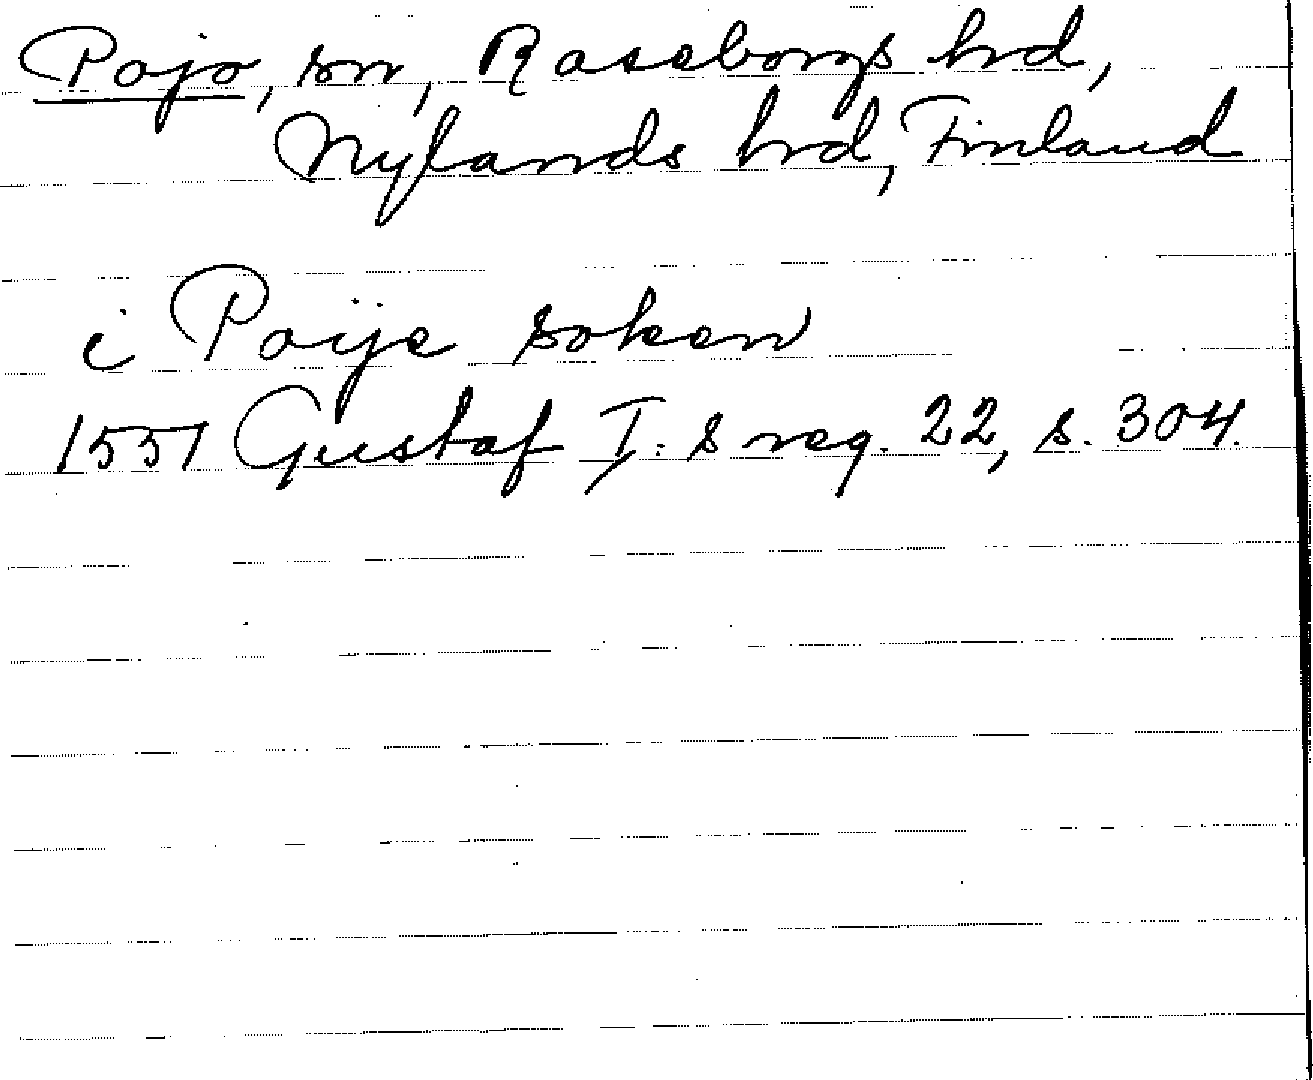 Pojo, sn, Raseborgs hrd,
Nylands hrd, Finland
i Poije soken
1551 Gustaf I:s reg. 22, s. 304.